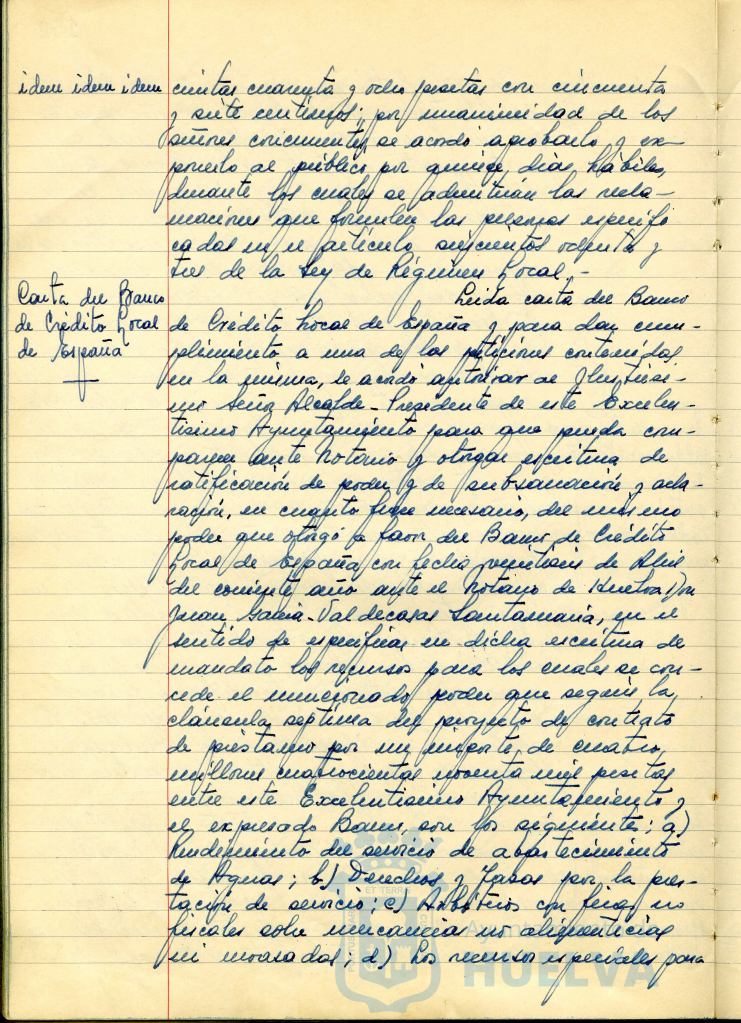 idem idem idem
cientas cuarenta y ocho pesetas con cincuenta
y siete centimos; por unanimidad de los
señores concurrentes, se acordó aprobarlo y ex-
ponerlo al público por quince dias hábiles,
durante los cuales se admitirán las recla-
maciones que formulen las personas especifi
cadas en el artículo seiscientos ochenta y
tres de la Ley de Régimen Local.-
Carta del Banco
de Crédito Local
de España
Leida carta del Banco
de Crédito Local de España y para dar cum-
plimiento a una de las peticiones contenidas
en la misma, se acordó autorizar al Ilustrísi-
mo Señor Alcalde-Presidente de este Excelen-
tísimo Ayuntamiento para que pueda com-
parecer ante Notario y otorgar escritura de
ratificación de poder y de subsanación y acla-
ración, en cuanto fuese necesario, del mismo
poder que otorgó a favor del Banco de Crédito
Local de España con fecha veintiseis de Abril
del corriente año ante el Notario de Huelva Don
Juan García-Valdecasas Santamaría, en el
sentido de especificar en dicha escritura de
mandato los recursos para los cuales se con-
cede el mencionado poder que según la
cláusula séptima del proyecto de contrato
de préstamo por un importe de cuatro
millones cuatrocientas noventa mil pesetas
entre este Excelentísimo Ayuntamiento y
el expresado Banco, son los siguientes; a)
Rendimiento del servicio de abastecimiento
de Aguas; b) Derechos y Tasas por la pres-
tación de servicio; c) Arbitrios con fines no
fiscales sobre mercancias no alimenticias
ni envasadas; d) Los recursos especiales para
HUELVA